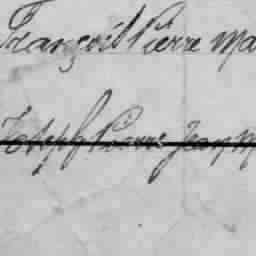 François Pierre Ma
Joseph Pierre Jean M